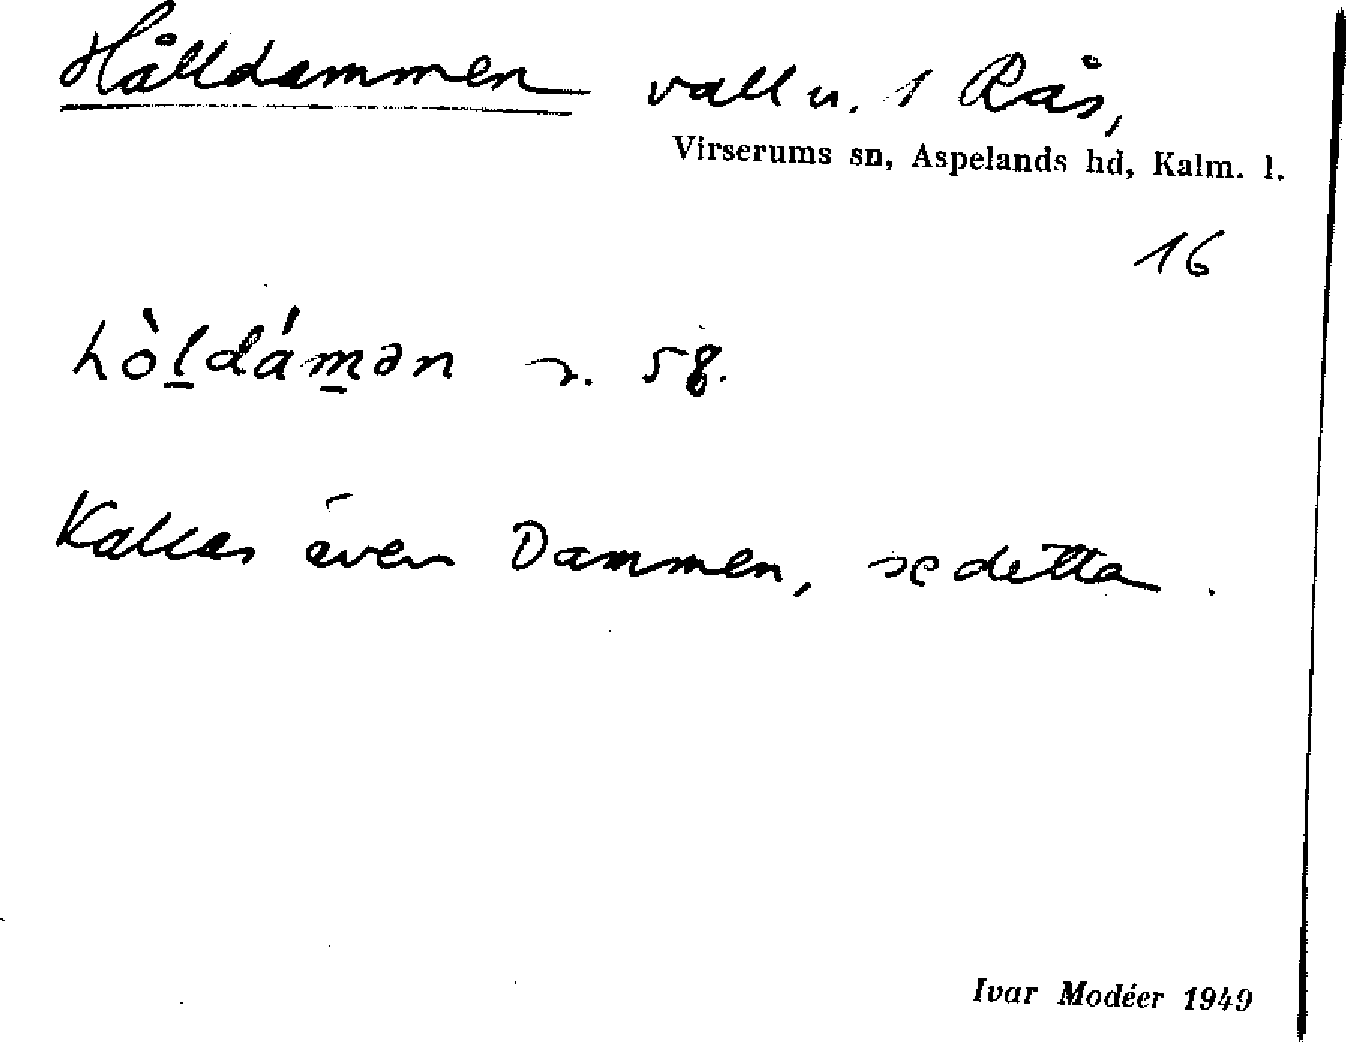 Hålldammen vall u. 1 Rås,
Virserums sn, Aspelands hd, Kalm. l.
16
hòl̲dám̲ən s. 58.
Kallas även Dammen, se detta.
Ivar Modéer 1949